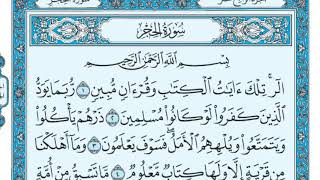 سُورَةُ الحِجْرِ
بِسْمِ اللَّهِ الرَّحْمَٰنِ الرَّحِيمِ
الٓر ۚ تِلْكَ ءَايَٰتُ الْكِتَٰبِ وَقُرْءَانٍ مُّبِينٍ ١ رُّبَمَا يَوَدُّ
الَّذِينَ كَفَرُوا لَوْ كَانُوا مُسْلِمِينَ ٢ ذَرْهُمْ يَأْكُلُوا
وَيَتَمَتَّعُوا وَيُلْهِهِمُ الْأَمَلُ ۖ فَسَوْفَ يَعْلَمُونَ ٣ وَمَا أَهْلَكْنَا
مِن قَرْيَةٍ إِلَّا وَلَهَا كِتَابٌ مَّعْلُومٌ ٤ مَّا تَسْبِقُ مِنْ أُمَّةٍ